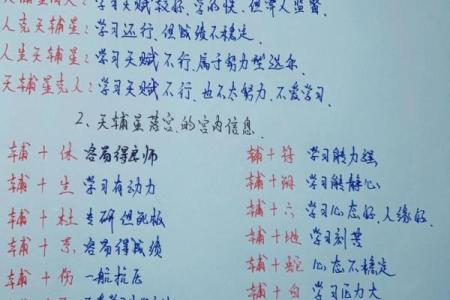 学习天赋较好,学的快,但需人监督.
人克天辅星:学习还行,但成绩不稳定.
人生天辅星:学习天赋不行,属于努力型选手.
天辅星克人:学习天赋不行,也不太努力,不爱学习.
2、天辅星落宫,的宫内信息.
辅+休 容易得良师
辅+符 学习能力强
辅+生 学习有动力
辅+阴 学习能静心
辅+杜 专研但死板
辅+六 学习心态好,人缘好.
辅+景 容易得成绩
辅+地 学习刻苦
辅+伤 一般抗压
辅+蛇 心态不稳定
辅+白 学习压力大